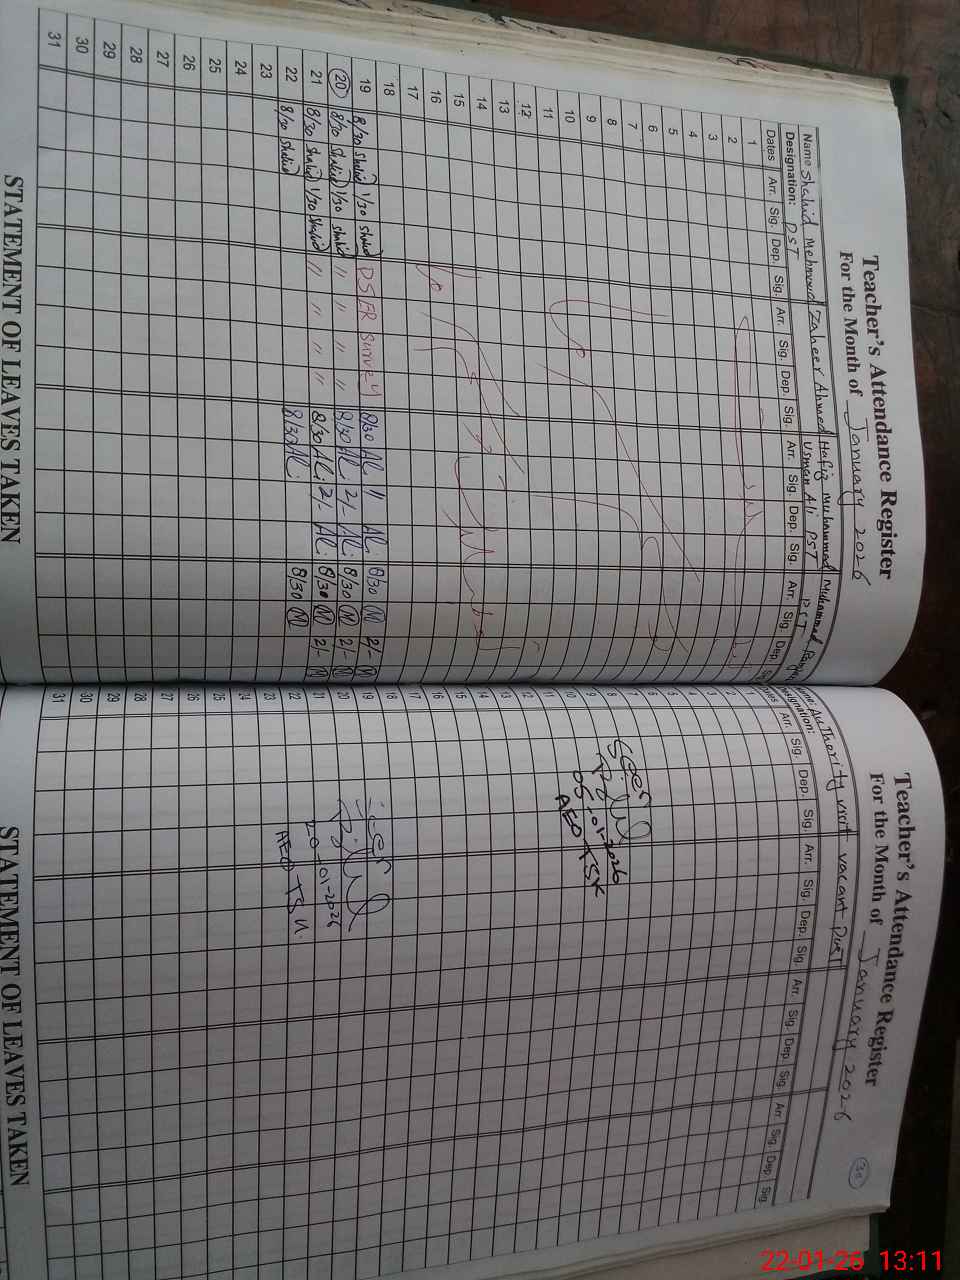 Teacher's Attendance Register
For the Month of January 2026
Name Shahid Mehmood Zaheer Ahmed Hafiz Muhammad Muhammad
Designation: PST Usman Ali PST PST
Dates Arr. Sig. Dep. Sig. Arr. Sig. Dep. Sig. Arr. Sig. Dep. Sig. Arr. Sig. Dep. Sig.
1
2
3
4
5
6
7
8
9
10
11
12
13
14
15
16
17
18
19 8/30 Shahid 1/30 Shahid PSER Survey 8/30 Ali " Ali 8/30 M 2/- M
20 8/30 Shahid 1/30 Shahid " " " " 8/30 Ali 2/- Ali 8/30 M 2/- M
21 8/30 Shahid 1/30 Shahid " " " " 8/30 Ali 2/- Ali 8/30 M 2/- M
22 8/30 Shahid 8/30 Ali 8/30 M
23
24
25
26
27
28
29
30
31
STATEMENT OF LEAVES TAKEN
30
Teacher's Attendance Register
For the Month of January 2026
Name: Authority visit vacant Post
Designation:
Dates Arr. Sig. Dep. Sig. Arr. Sig. Dep. Sig. Arr. Sig. Dep. Sig. Arr. Sig. Dep. Sig.
1
2
3
4
5
6
7
8
9
10
11
12
13
14
15
16
17
18
19
20
21
22
23
24
25
26
27
28
29
30
31
Seen
05-01-2026
AEO TSK
Seen
20-01-2026
AEO
STATEMENT OF LEAVES TAKEN
22-01-26 13:11